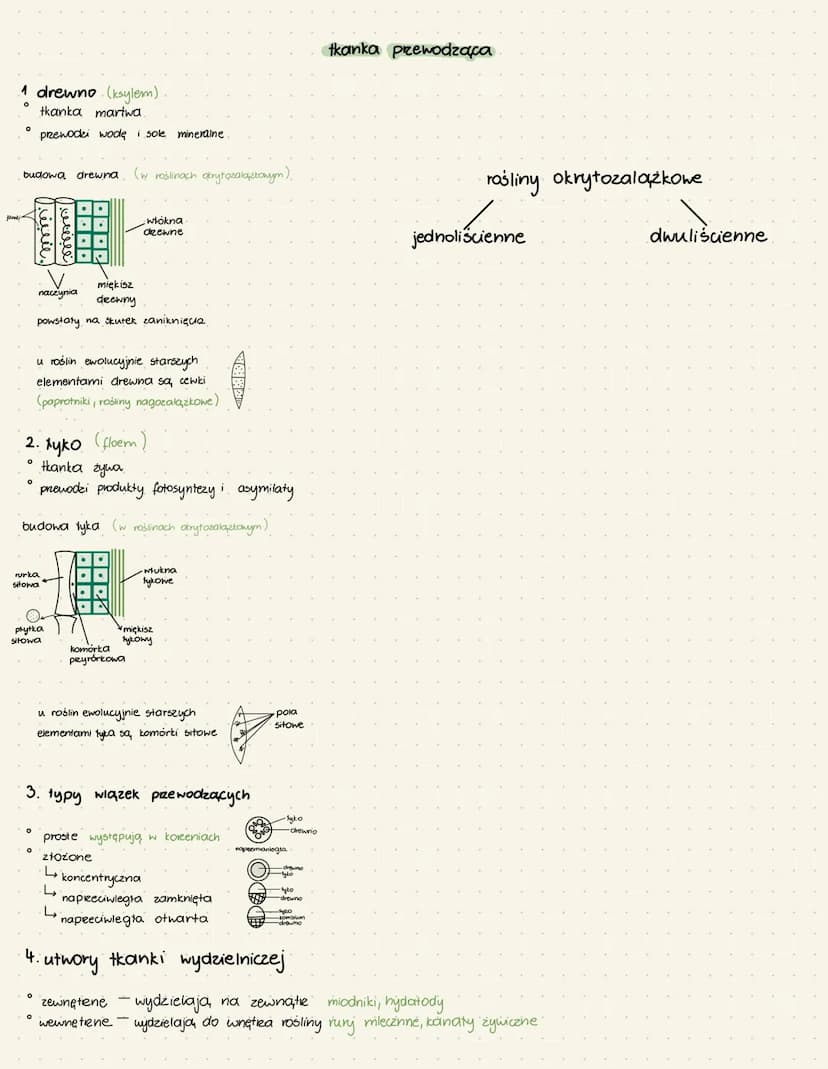 tkanka przewodząca
1 drewno (ksylem)
° tkanka martwa
° przewodzi wodę i sole mineralne
budowa drewna (w roślinach okrytozalążkowym)
włókna
drzewne
naczynia
miękisz
drzewny
powstały na skutek zaniknięcia
u roślin ewolucyjnie starszych
elementami drewna są cewki
(paprotniki, rośliny nagozalążkowe)
2. łyko (floem)
° tkanka żywa
° przewodzi produkty fotosyntezy i asymilaty
budowa łyka (w roślinach okrytozalążkowym)
rurka
sitowa
włukna
łykowe
płytka
sitowa
miękisz
łykowy
komórka
przyrórkowa
u roślin ewolucyjnie starszych
elementami łyka są komórki sitowe
pola
sitowe
3. typy wiązek przewodzących
° proste występują w korzeniach
° złożone
↳ koncentryczna
↳ naprzeciwległa zamknięta
↳ naprzeciwległa otwarta
łyko
drewno
naprzemianległa
drewno
łyko
łyko
drewno
łyko
kambium
drewno
4. utwory tkanki wydzielniczej
° zewnętrzne — wydzielają na zewnątrz miodniki, hydatody
° wewnętrzne — wydzielają do wnętrza rośliny rury mleczne, kanały żywiczne
rośliny okrytozalążkowe
jednoliścienne
dwuliścienne